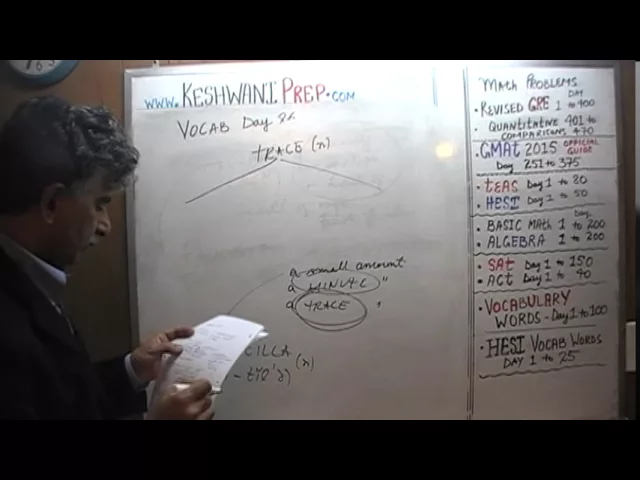 www.KESHWANIPREP.COM
VOCAB Day 86
TRACE (n)
a small amount
a MINUTE "
a TRACE "
CILLA
(n)
MATH PROBLEMS
DAY
• REVISED GRE 1 to 400
• QUANTITATIVE 401 to
COMPARISONS 470
• GMAT 2015 OFFICIAL GUIDE
Day 251 to 375
• TEAS Day 1 to 20
• HESI Day 1 to 50
Day
• BASIC MATH 1 to 200
• ALGEBRA 1 to 200
• SAT Day 1 to 150
• ACT Day 1 to 40
• VOCABULARY
WORDS - Day 1 to 100
• HESI VOCAB WORDS
DAY 1 TO 25